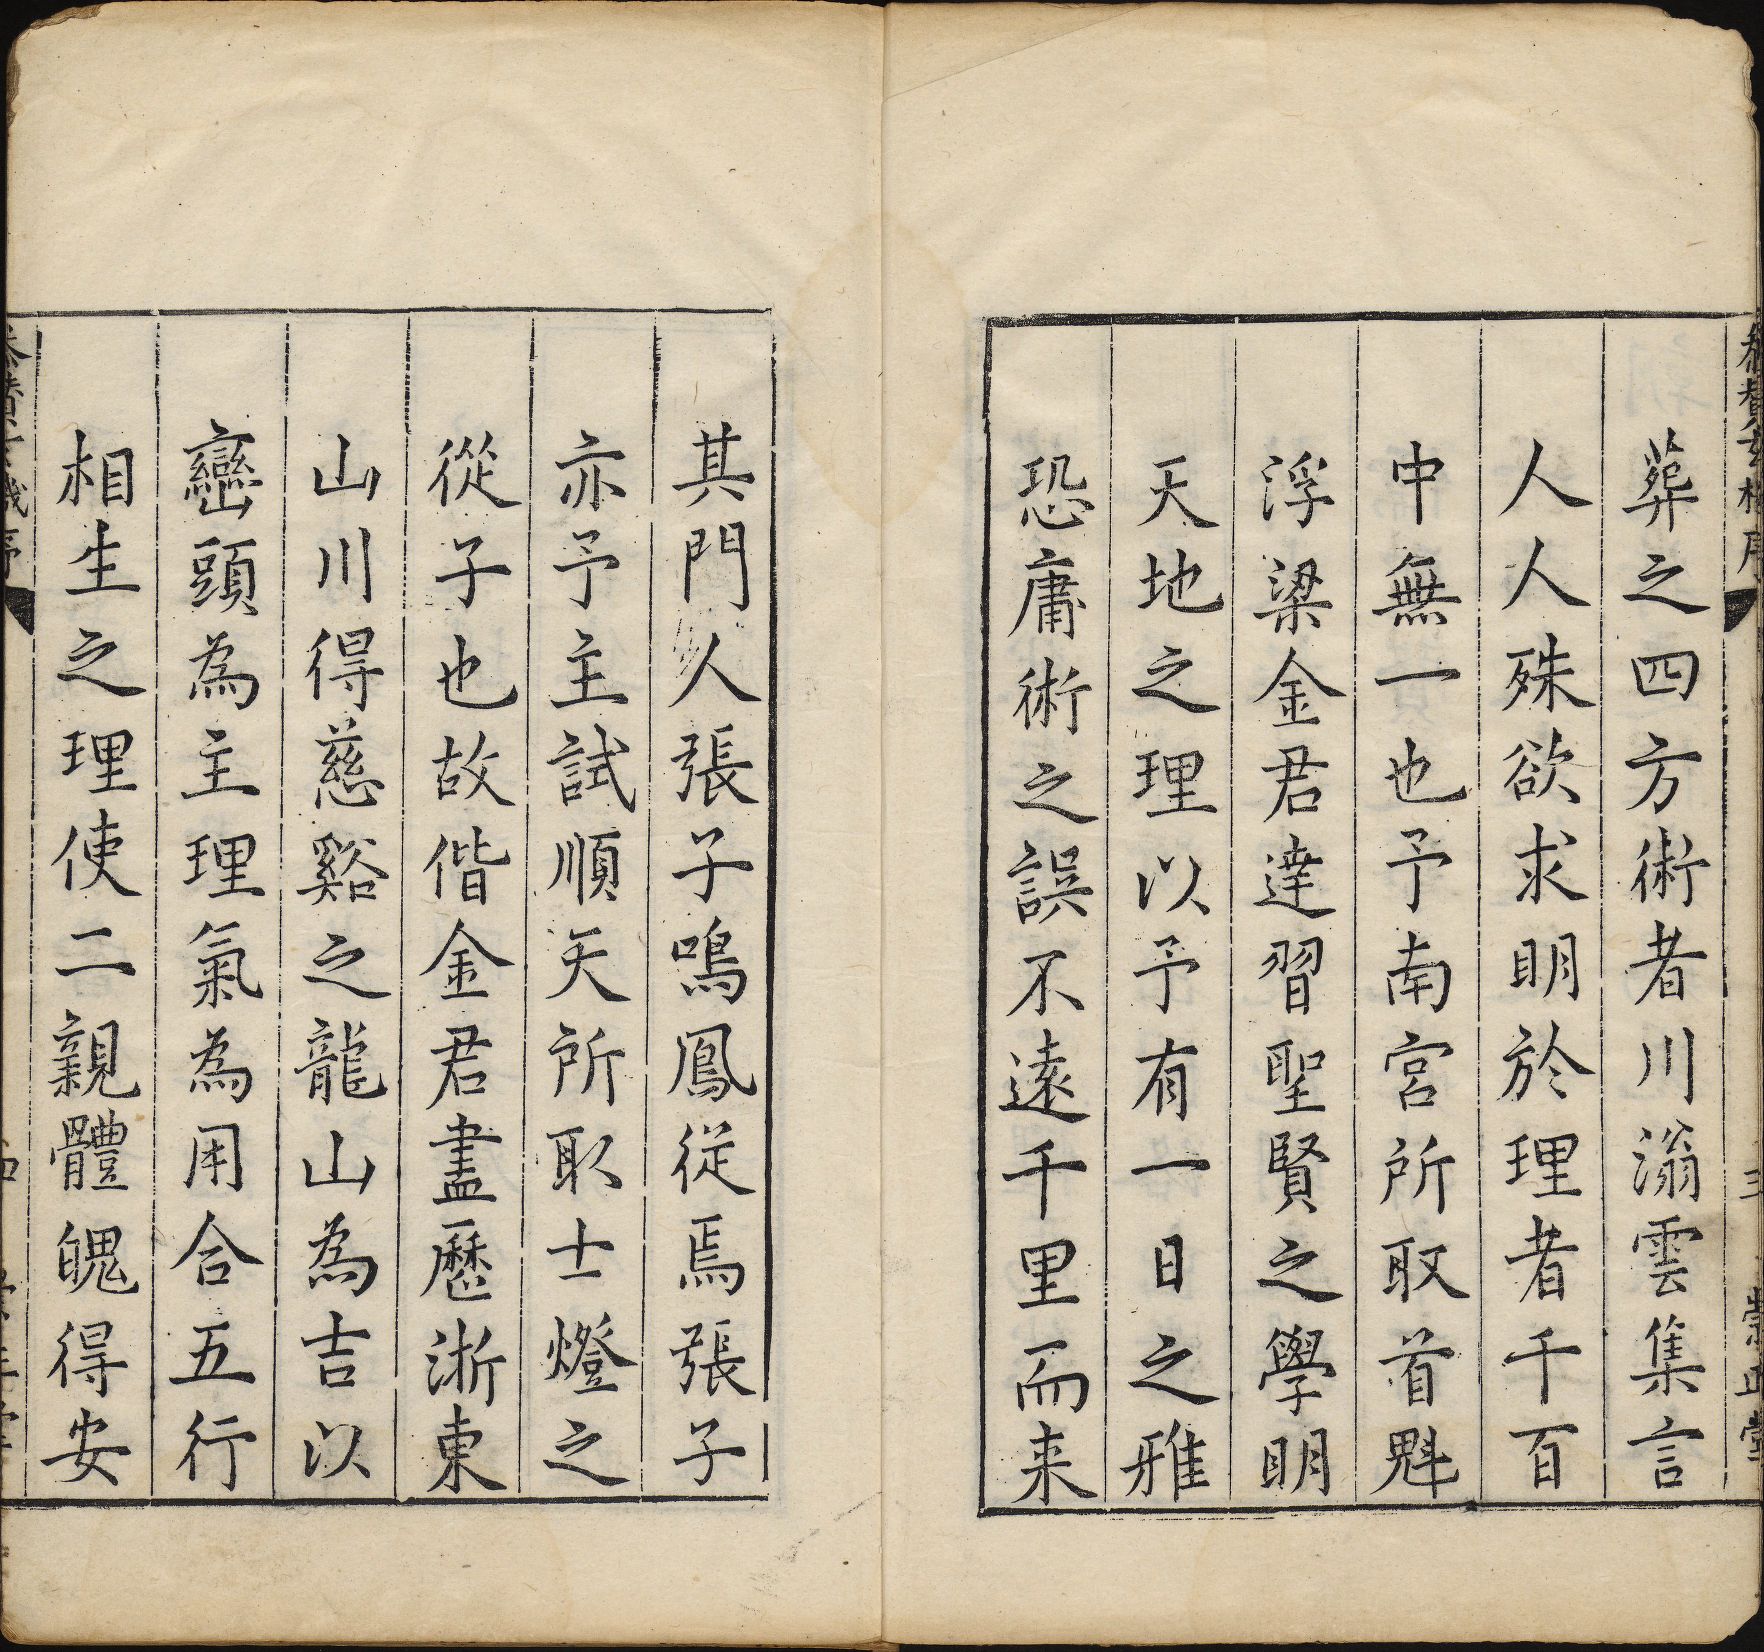 葬之四方術者川滃雲集言
人人殊欲求明於理者千百
中無一也予南宮所取首魁
浮梁金君達習聖賢之學明
天地之理以予有一日之雅
恐庸術之誤不遠千里而来
其門人張子鳴鳳從焉張子
亦予主試順天所取士燈之
從子也故偕金君盡歷浙東
山川得慈谿之龍山為吉以
巒頭為主理氣為用合五行
相生之理使二親體魄得安